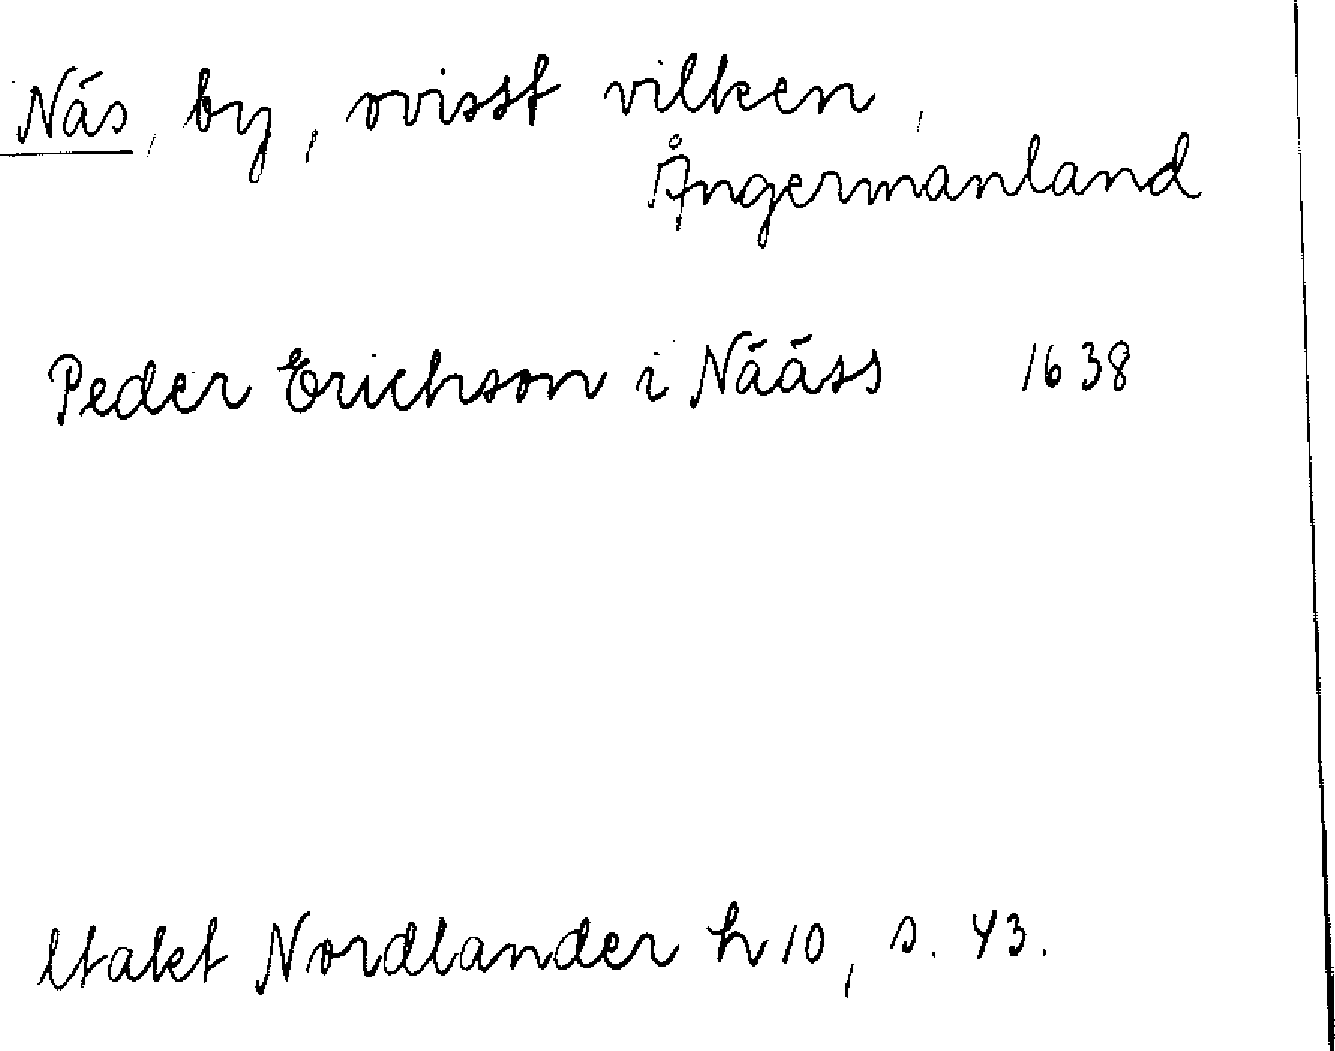 Näs, by, ovisst vilken,
Ångermanland
Peder Erichson i Nääss 1638
Nordlander h 10, s. 43.